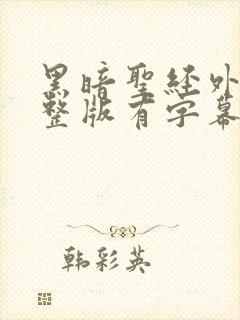 黑暗聖经外
整版有字幕
韩彩英